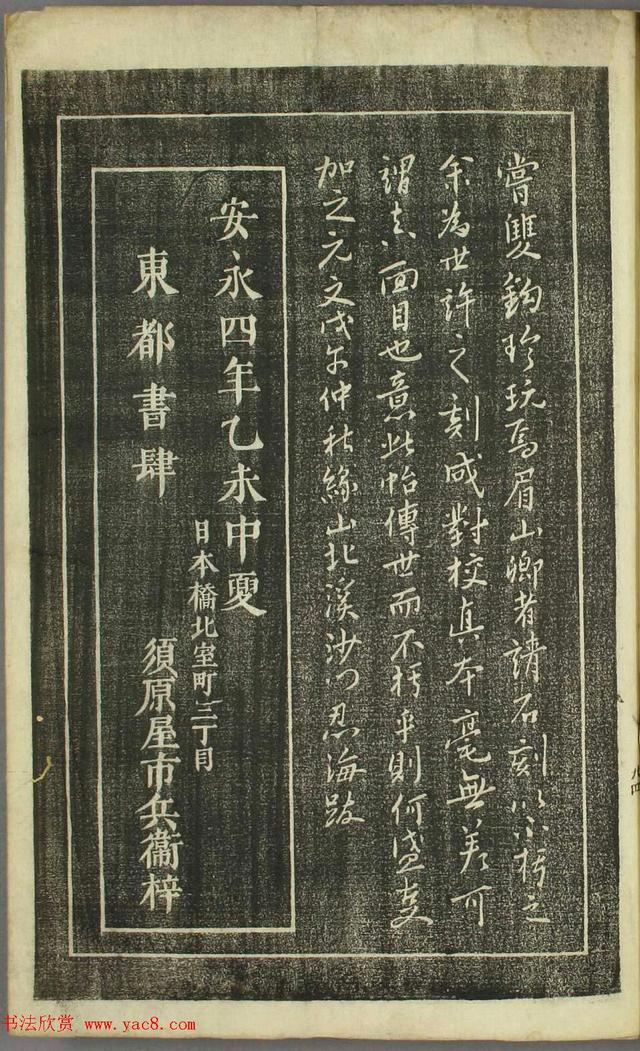 嘗雙鉤珍玩焉眉山卿者請石刻以不朽之
余為世許之刻成對校真本毫無差可
謂真面目也意此帖傳世而不朽乎則何盛
加之元文戊午仲秋緣山北溪沙門忍海跋
安永四年乙未中夏
東都書肆
日本橋北室町三丁目
須原屋市兵衞梓
書法欣赏 www.yac8.com